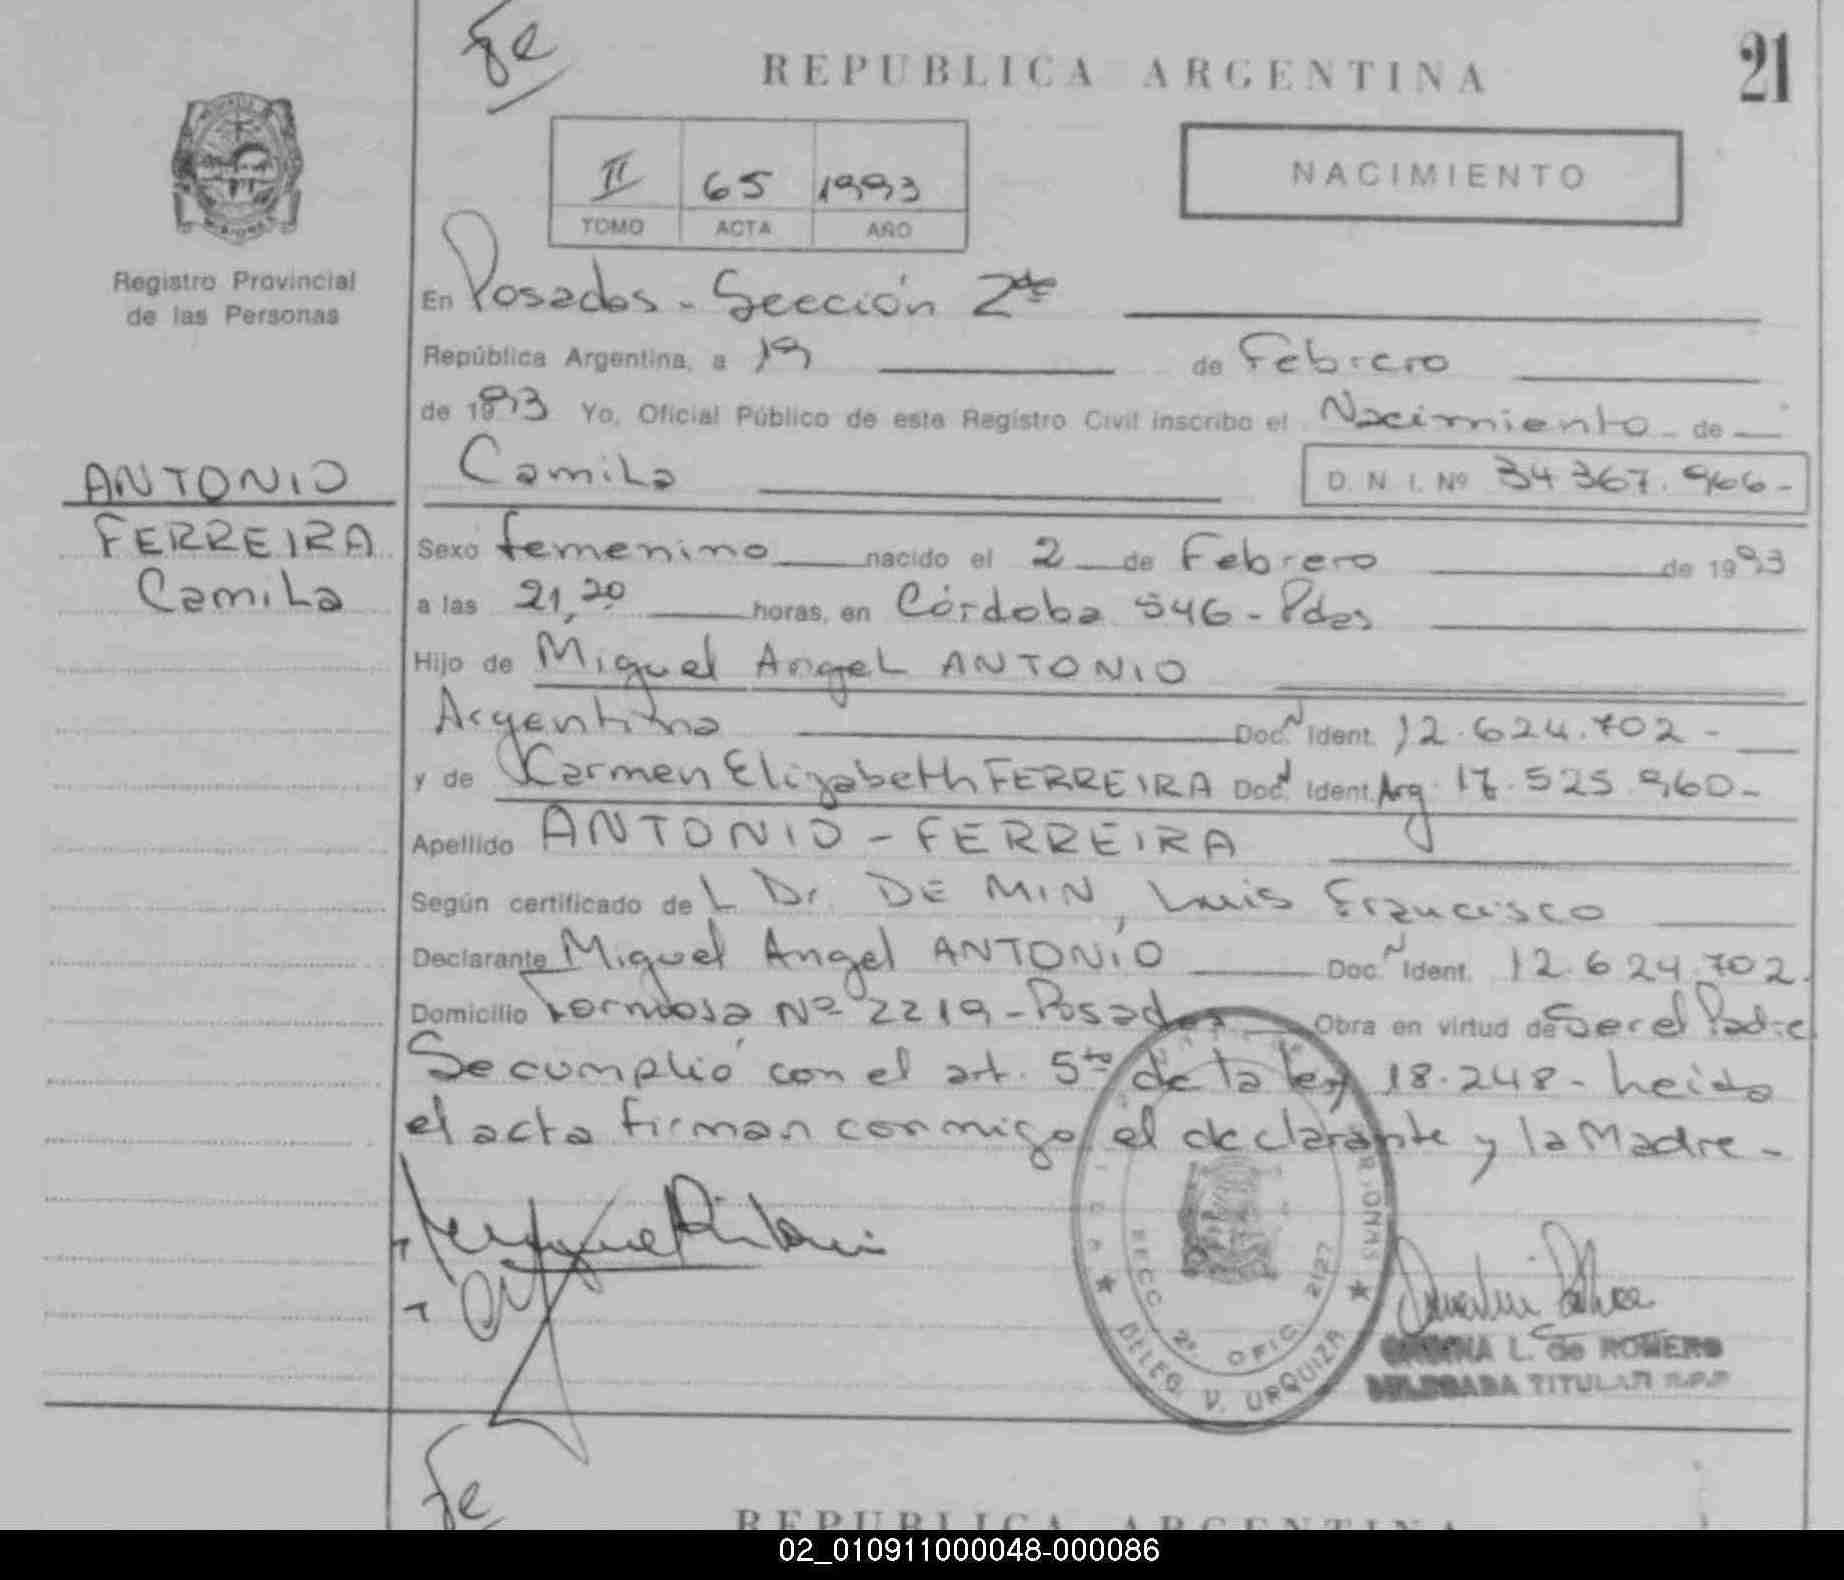 fe
REPUBLICA ARGENTINA
21
II 65 1993
TOMO ACTA AÑO
NACIMIENTO
Registro Provincial
de las Personas
En Posadas - Sección 2da
República Argentina, a 19 de Febrero
de 1993 Yo, Oficial Público de este Registro Civil inscribo el Nacimiento - de
Camila
D. N. I. Nº 34 367.966-
ANTONIO
FERREIRA
Camila
Sexo femenino nacido el 2 de Febrero de 1993
a las 21,20 horas, en Córdoba 546 - Pdas
Hijo de Miguel Angel ANTONIO
Argentino DocN Ident. 12.624.702-
y de Carmen Elizabeth FERREIRA DocN Ident. Arg. 17.525.960-
Apellido ANTONIO - FERREIRA
Según certificado de L Dr. DE MIN, Luis Francisco
Declarante Miguel Angel ANTONIO DocN Ident. 12.624.702.
Domicilio Formosa Nº 2219 - Posadas Obra en virtud de Ser el Padre
Se cumplió con el art. 5to de la ley 18.248 - Leida
el acta firman conmigo el declarante y la Madre -
SECC. 2ª. OFIC. 2127
DELEG. V. URQUIZA
L. de ROMERO
DELEGADA TITULAR R.P.P
fe
REPUBLICA ARGENTINA
02_010911000048-000086